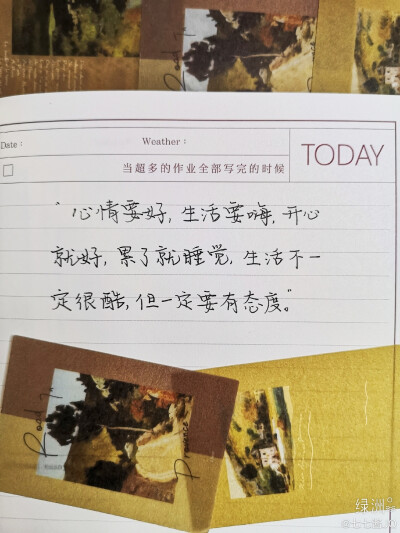 Road in
Date：
Weather：
TODAY
当超多的作业全部写完的时候
“心情要好, 生活要嗨, 开心
就好, 累了就睡觉, 生活不一
定很酷, 但一定要有态度。”
Road in
Provence
绿洲